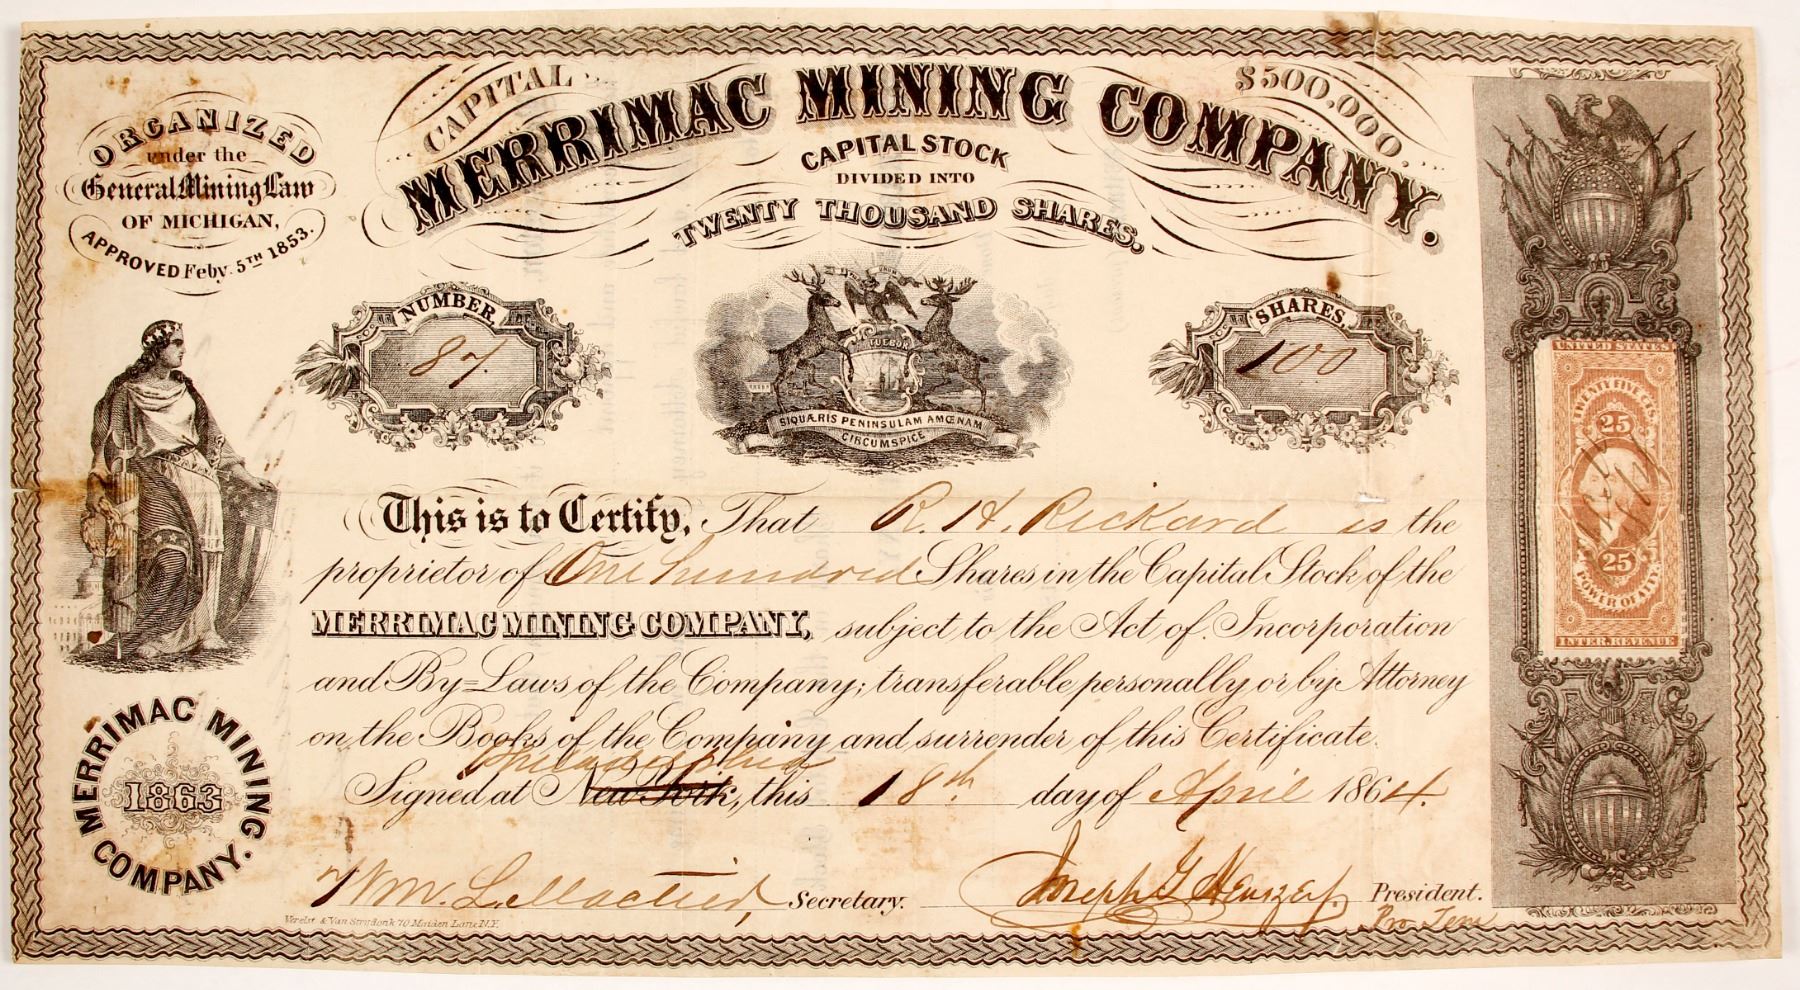 ORGANIZED
under the
General Mining Law
OF MICHIGAN,
APPROVED Feby. 5TH 1853.
CAPITAL $500,000.
MERRIMAC MINING COMPANY.
CAPITAL STOCK
DIVIDED INTO
TWENTY THOUSAND SHARES.
NUMBER,
87.
TUEBOR
SIQUÆRIS PENINSULAM AMŒNAM
CIRCUMSPICE
SHARES,
100
This is to Certify, That R. H. Rickard is the
proprietor of One hundred Shares in the Capital Stock of the
MERRIMAC MINING COMPANY, subject to the Act of Incorporation
and By=Laws of the Company; transferable personally or by Attorney
on the Books of the Company and surrender of this Certificate.
Philadelphia
Signed at New York, this 18th day of April 1864.
Wm. L. Secretary. Joseph G. President.
Pro Tem
Verelst & Van Strydonk 70 Maiden Lane N.Y.
MERRIMAC MINING COMPANY.
1863
UNITED STATES
TWENTY FIVE CTS
25
25
POWER OF ATTY.
INTER. REVENUE